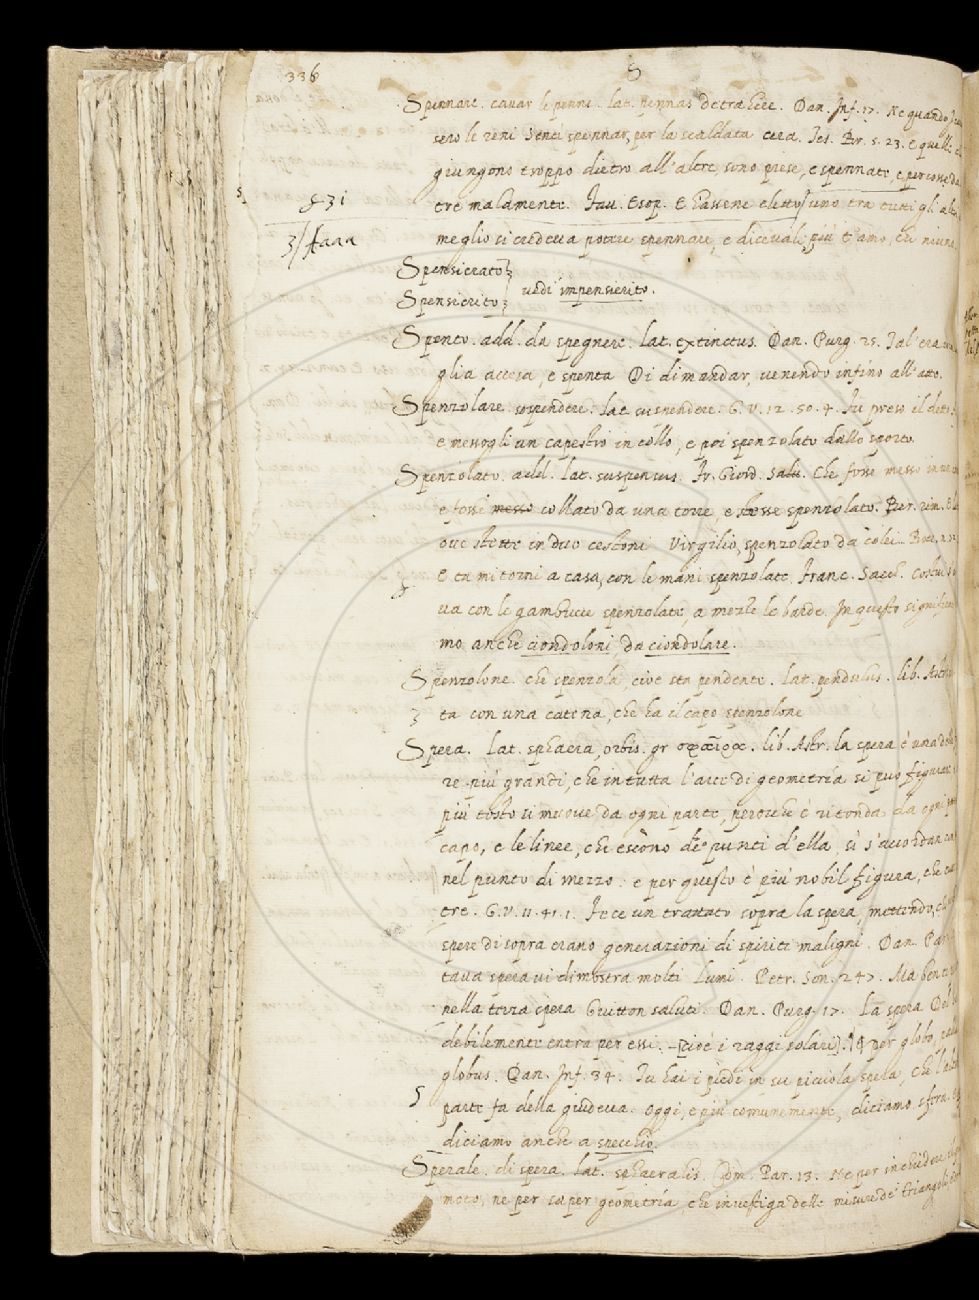 336
S
Spennare. cavar le penne. lat. pennas detrahere. Dan. Inf. 17. Ne quando
sero le reni senti spennar, per la scaldata cera. Tes. Br. 5. 23. E quelli
giungono troppo dietro all'altre, sono prese, e spennate, e percosse,
tre malamente. Fav. Esop. E hassene eletto uno tra tutti gli
meglio si credeva potere spennare, e diceuali, più t'amo, che
Spensierato
vedi impensierito.
Spensierito
Spento. add. da spegnere. lat. extinctus. Dan. Purg. 25. Tal era
glia accesa, e spenta Di dimandar, venendo infino all'atto.
Spenzolare. sospendere. lat. suspendere. G. V. 12. 50. 4. Fu preso il detto
e messogli un capestro in collo, e poi spenzolato dallo sporto.
Spenzolato. add. lat. suspensus. Fr. Giord. Salv. Che fosse messo in
e fosse messo collato da una torre, e stesse spenzolato. Bur. rim.
ove stette in duo cestoni Virgilio, spenzolato da colei.
E ta mi torni a casa, con le mani spenzolate. Franc. Sacch.
va con le gambucce spenzolate, a mezze le barde. In questo
mo anche ciondoloni, da ciondolare.
Spenzolone. che spenzola, cioè sta pendente. lat. pendulus. lib. Astr.
ta con una catena, che ha il capo spenzolone
Spera. Lat. sphaera, orbis. gr σφαῖρα. lib. Astr. la spera è una
re più grandi, che in tutta l'arte di geometria si può figurare
più tosto si muove da ogni parte, perocchè è ritonda da ogni
capo, e le linee, che escono de punti d'ella, si s'accordan
nel punto di mezzo: e per questo è più nobil figura, che
tre. G. V. 11. 41. 1. Fece un trattato sopra la spera, mettendo,
spere di sopra erano generazioni di spiriti maligni. Dan. Par
tava spera vi dimostra molti Lumi. Petr. Son. 247. Ma ben ti
nella terza spera Guitton saluti. Dan. Purg. 17. La spera Del
debilemente entra per essi. [cioè i raggi solari]. per globo,
globus. Dan. Inf. 34. Tu hai i piedi in su picciola spera, Che
parte fa della giudecca. oggi, e più comunemente, diciamo sfera.
diciamo anche a specchio.
Sperale. di spera. Lat. sphaeralis. Com. Par. 13. Ne per
moto, ne per saper geometria, che investiga delle misure de' triangoli